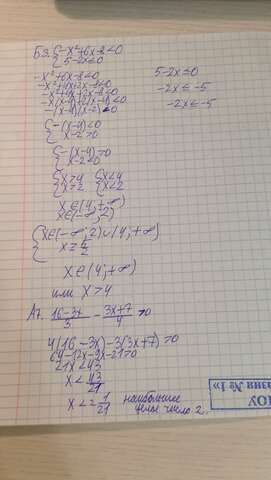 Б3. { -x²+6x-8<0
{ 5-2x≤0
-x²+6x-8<0
-x²+4x+2x-8<0
-x(x-4)+2(x-4)<0
-(x-4)(x-2)<0
5-2x≤0
-2x≤-5
-2x≤-5
{ -(x-4)<0
{ x-2>0
{ -(x-4)>0
{ x-2<0
{ x>4 { x<4
{ x>2 { x<2
x∈(4;+∞)
x∈(-∞;2)
{ x∈(-∞;2)∪(4;+∞)
{ x≥5/2
x∈(4;+∞)
или x>4
А7. (16-3x)/3 - (3x+7)/4 >0
4(16-3x)-3(3x+7)>0
64-12x-9x-21>0
21x<43
x<43/21
x<2 1/21 наибольшее
целое число 2.
№ 1»